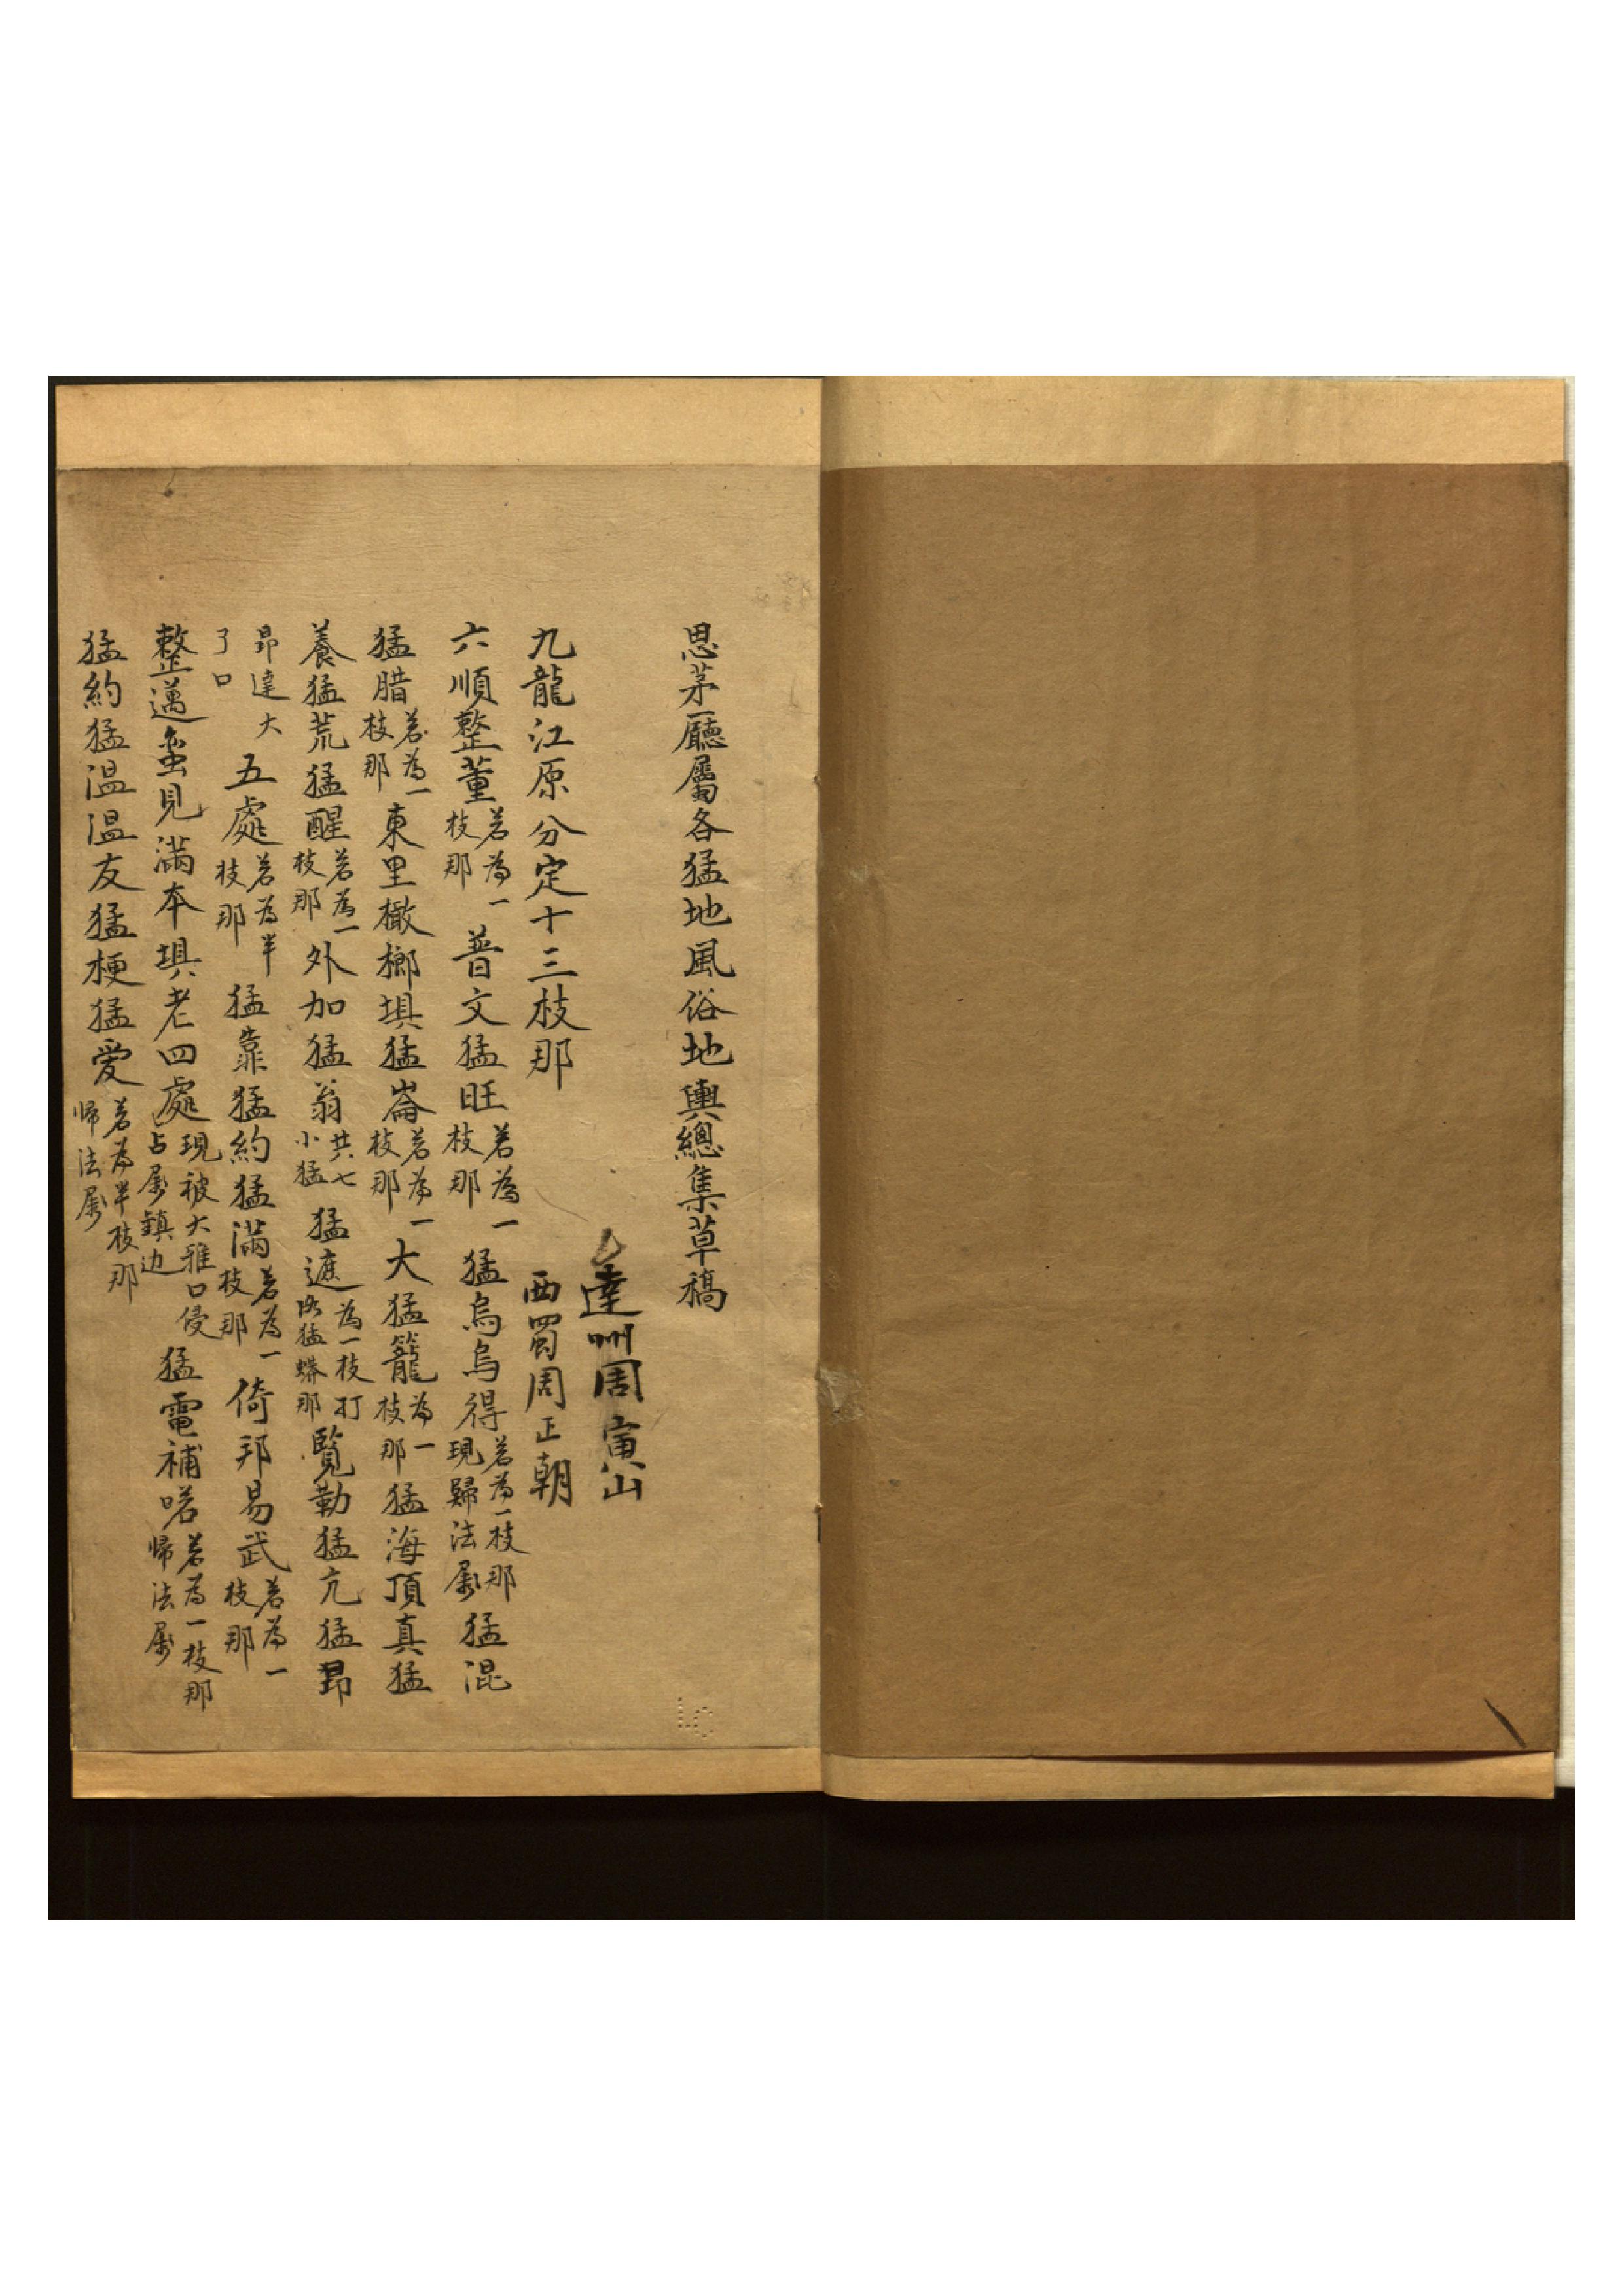 思茅廳屬各猛地風俗地輿總集草稿
達州周寅山
西蜀周正朝
九龍江原分定十三枝那
六順整董着為一枝那普文猛旺着為一枝那猛烏烏得着為一枝那現歸法屬猛混
猛腊着為一枝那東里橄榔埧猛崙着為一枝那大猛籠為一枝那猛海頂真猛
養猛荒猛醒着為一枝那外加猛翁共七小猛猛遮為一枝打洛猛蟒那覧勒猛亢猛昂
昂達大了口五處着為半枝那猛靠猛約猛滿着為一枝那倚邦易武着為一枝那
整邁蚕見滿本埧老四處現被大雅口侵占屬鎮边猛電補喏着為一枝那帰法屬
猛約猛温温友猛梗猛爱着為半枝那帰法屬